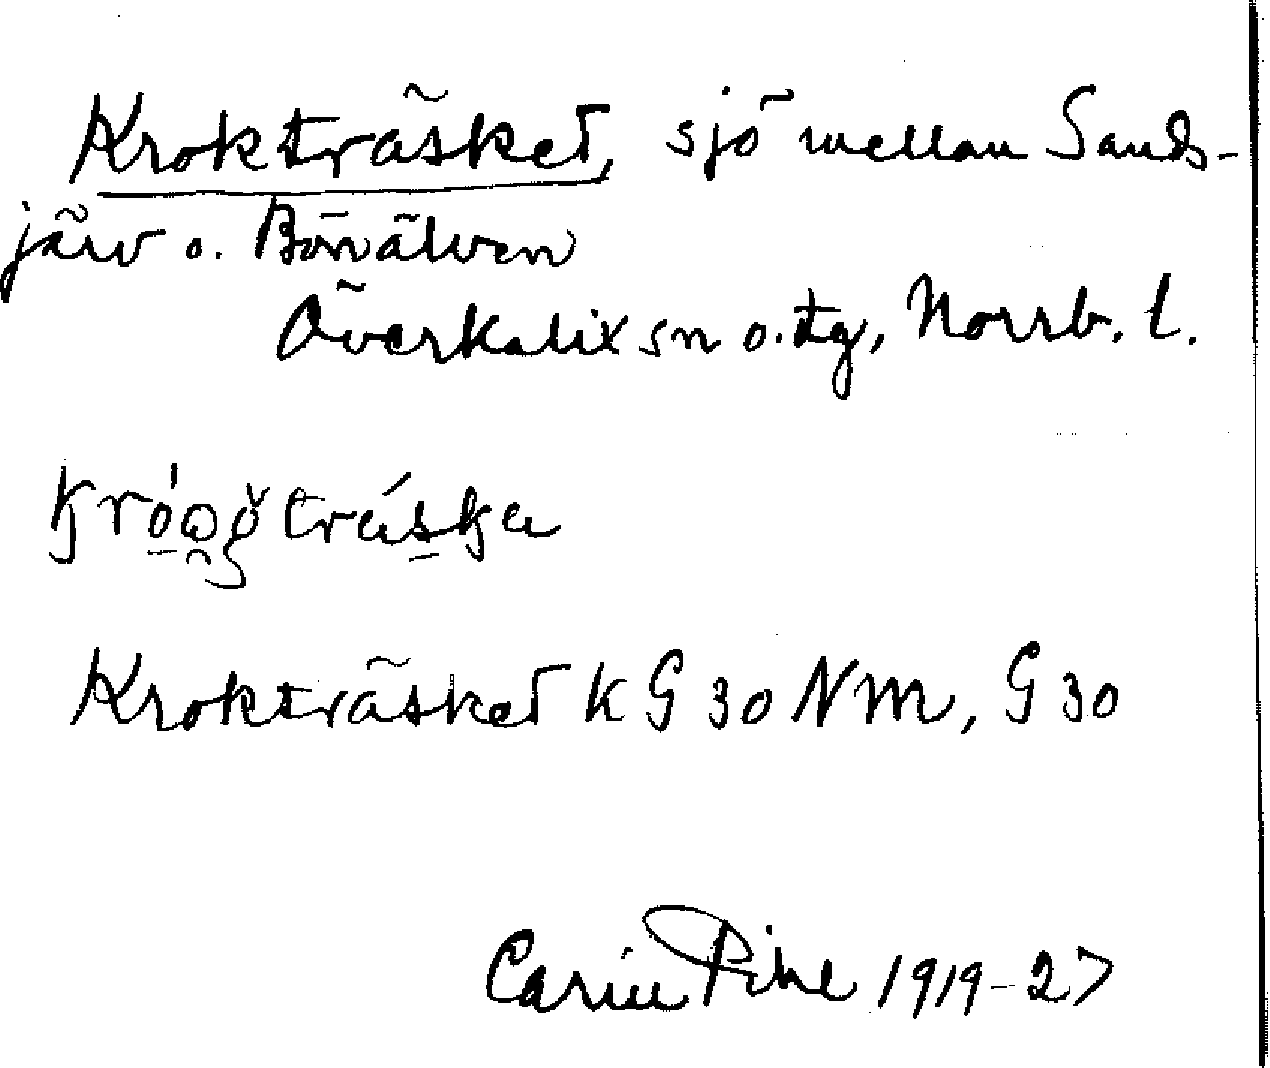 Krokträsket, sjö mellan Sands-
järv o. Bönälven
Överkalix sn o. tg, Norrb. l.
Krokträsket K G 30 NM, G 30
Carin Pihl 1919-27